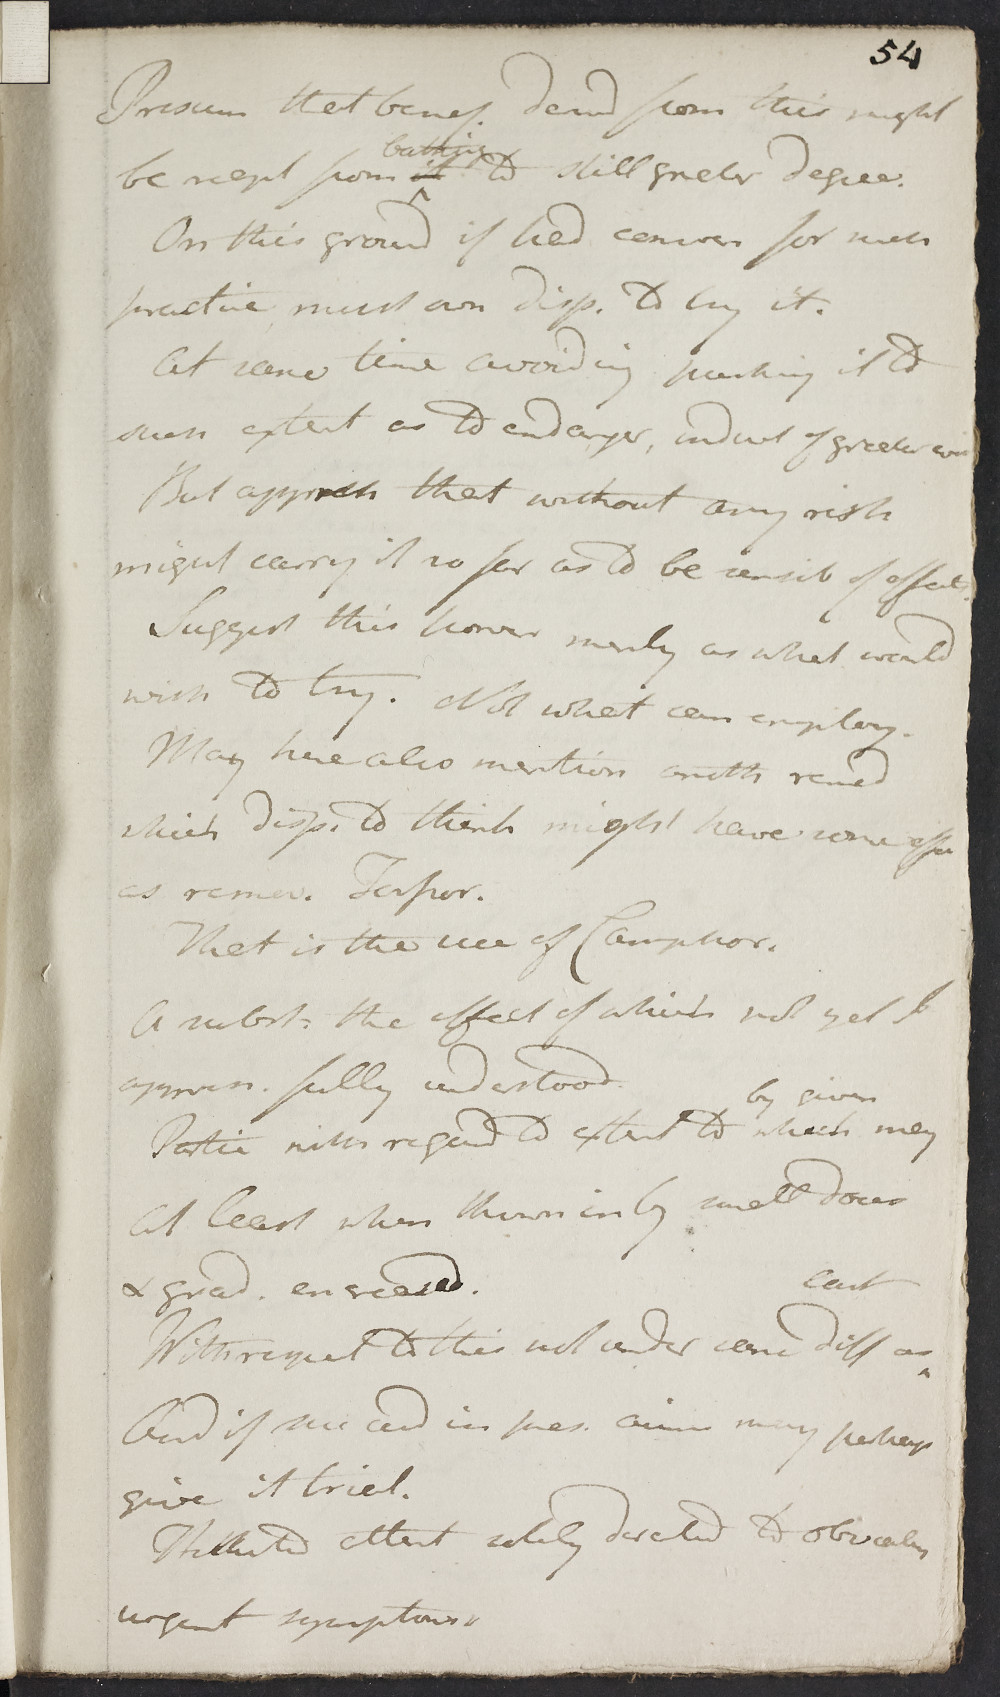 54
Presum that benef. derivd from this might
bathing
be reapt from it to still greater degree.
On this ground if had conven for such
practice, must own disp. to try it.
At same time avoiding pushing it to
such extent as to endanger, induct of greater evil
But appreh that without any risk
might carry it so far as to be sensib of effects.
Suggest this howev merely as what would
wish to try. Not what can employ.
May here also mention anoth remed
which disp. to think might have some effec
as remov. Torpor.
That is the use of Camphor.
A subst. the effect of which not yet I
appreh. fully understood.
by given
Partic with regard to extent to which may
At least when thrown in by small doses
& grad. encreased.
cast
With respect to this not under same diff as
And if see aid in pres. may perhaps
give it trial.
Hitherto attent solely directed to obviating
urgent symptoms